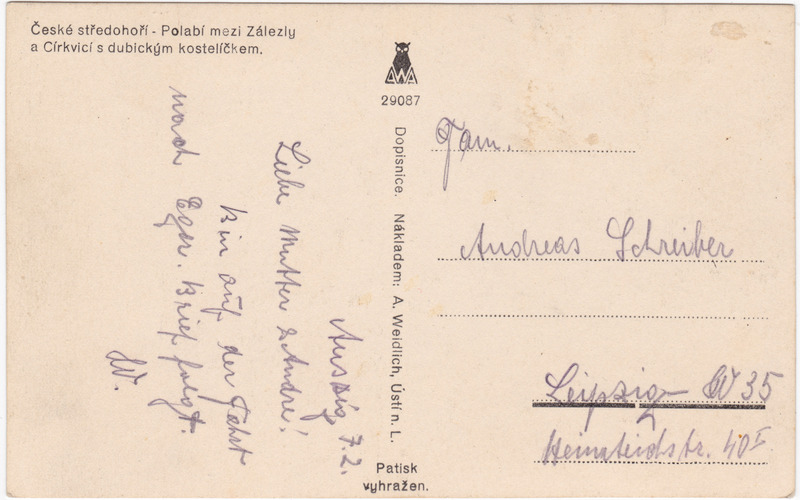 České středohoří - Polabí mezi Zálezly
a Církvicí s dubickým kostelíčkem.
AWA
29087
Dopisnice. Nákladem: A. Weidlich, Ústí n. L.
Patisk
vyhražen.
Aussig, 7.2.
Liebe Mutter & Andre!
Bin auf der Fahrt
nach Eger. Brief folgt.
W.
Fam.
Andreas Schreiber
Leipzig W 35
40 I